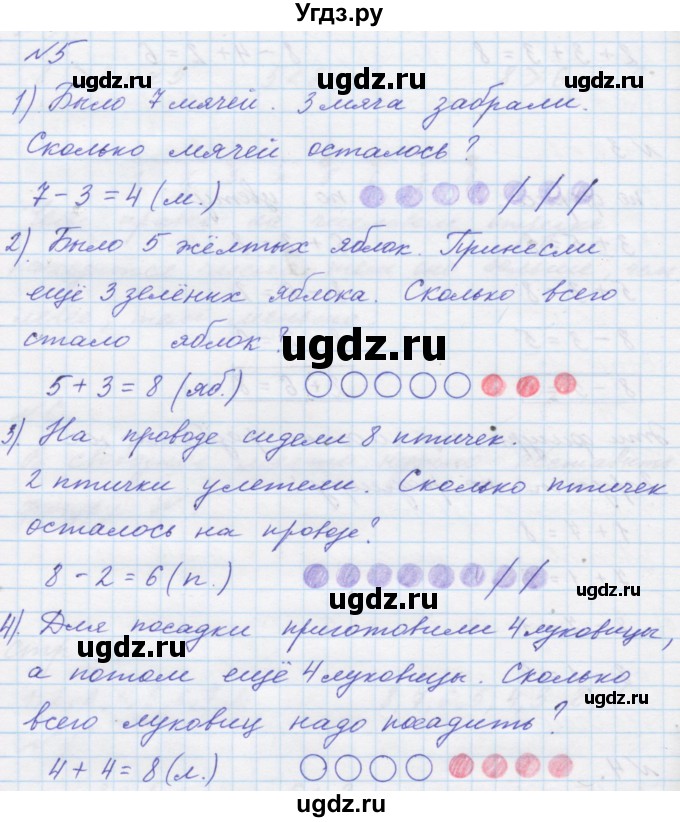 Угдз.ру
№5
ugdz.ru ugdz.ru ugdz.ru
1) Было 7 мячей. 3 мяча забрали.
Сколько мячей осталось?
7 - 3 = 4 (м.)
ugdz.ru ugdz.ru
2) Было 5 жёлтых яблок. Принесли
ещё 3 зелёных яблока. Сколько всего
стало яблок?
ugdz.ru
5 + 3 = 8 (яб.)
ugdz.ru ugdz.ru
3) На проводе сидели 8 птичек.
2 птички улетели. Сколько птичек
осталось на проводе?
8 - 2 = 6 (п.)
ugdz.ru
4). Для посадки приготовили 4 луковицы,
ugdz.ru
а потом ещё 4 луковицы. Сколько
ugdz.ru
всего луковиц надо посадить?
4 + 4 = 8 (л.)
ugdz.ru ugdz.ru
ugdz.ru